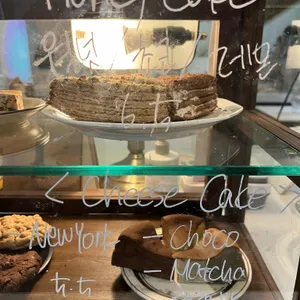 Honey Cake
월넛 / 초코 / 레몬
< Cheese Cake >
New York - Choco
- Matcha